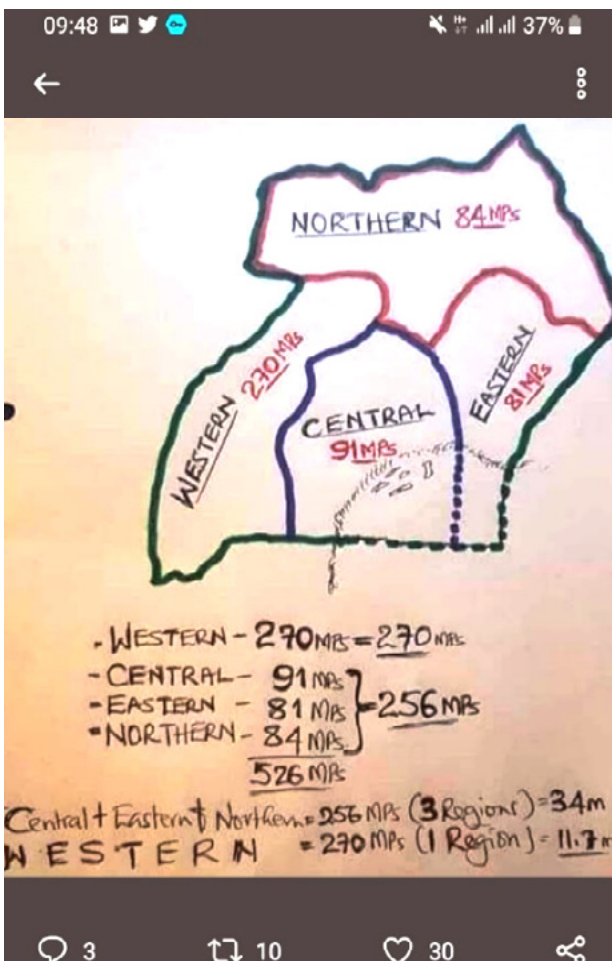 09:48
37%
NORTHERN 84MPs
WESTERN 270MPs
CENTRAL
91MPs
EASTERN
81MPs
. WESTERN - 270MPs = 270MPs
- CENTRAL - 91MPs
- EASTERN - 81MPs = 256MPs
- NORTHERN - 84MPs
526MPs
Central + Eastern + Northern = 256 MPs (3 Regions) = 34m
WESTERN = 270 MPs (1 Region) = 11.7m
3 10 30